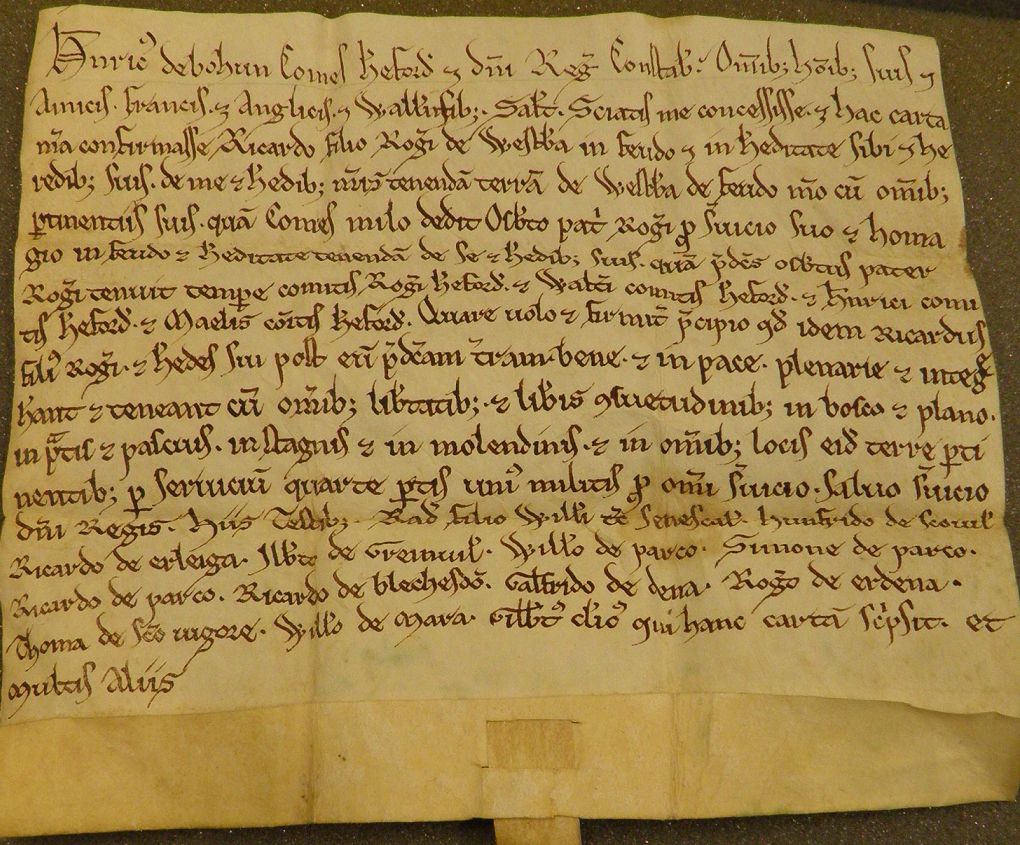 Henric᾽ de bohun Comes hẽford ⁊ dñi Reg̃ Constab᾽. Om̃ib; hõib; suis ⁊
Amicis. francis. ⁊ Anglicis. ⁊ Wallensib;. Salt̃. Sciatis me concessisse. ⁊ hac carta
m̃a confirmasse Ricardo filio Rog̃i de Westb̃a in feudo ⁊ in h̃editate sibi ⁊ he
redib; suis. de me ⁊ h̃edib; m̃is tenendã terrã de Westb̃a de feudo m̃o cũ om̃ib;
ꝑtinentiis suis. quã Comes milo dedit Osb̃to pat̃ Rog̃i ꝓ s̃uicio suo ⁊ homa
gio in feudo ⁊ hereditate tenendã de se ⁊ h̃edib; suis. quã p̃dc̃s osb̃tus pater
Rog̃i tenuit temp̃e comitis Rog̃i h̃eford. ⁊ Walt̃i comitis h̃eford. ⁊ h̃nrici comi
tis h̃eford. ⁊ Maelis cõitis h̃eford. Quare uolo ⁊ firmit̃ p̃cipio qd̃ idem Ricardus
fili᾽ Rog̃i. ⁊ h̃edes sui post eũ p̃dc̃am t̃ram bene. ⁊ in pace. plenarie ⁊ integ̃
h̃ant ⁊ teneant cũ om̃ib; lib̃tatib;. ⁊ lib̃is ꝯsuetudinib; in bosco ⁊ plano.
in p̃tis ⁊ pascuis. in stagnis ⁊ in molendinis. ⁊ in om̃ib; locis eid̃ terre ꝑti
nentib; ꝑ seruiciũ quarte ꝑtis uni᾽ militis ꝓ om̃i s̃uicio. saluo s̃uicio
dñi Regis. Hiis Testib;. Rad̃ filio Will̃i t̃c Senescal̃. hunfrido de scouil̃
Ricardo de erleiga. Ilb̃to de Greinuil̃. Will̃o de parco. Simone de parco.
Ricardo de parco. Ricardo de blechesdõ. Galfrido de dena. Rog̃o de erdena.
Thoma de sc̃o uigore. Will̃o de Mara. Gilb̃t᾽ cl̃ic᾽ qui hanc cartã sc̃psit. et
multis Aliis